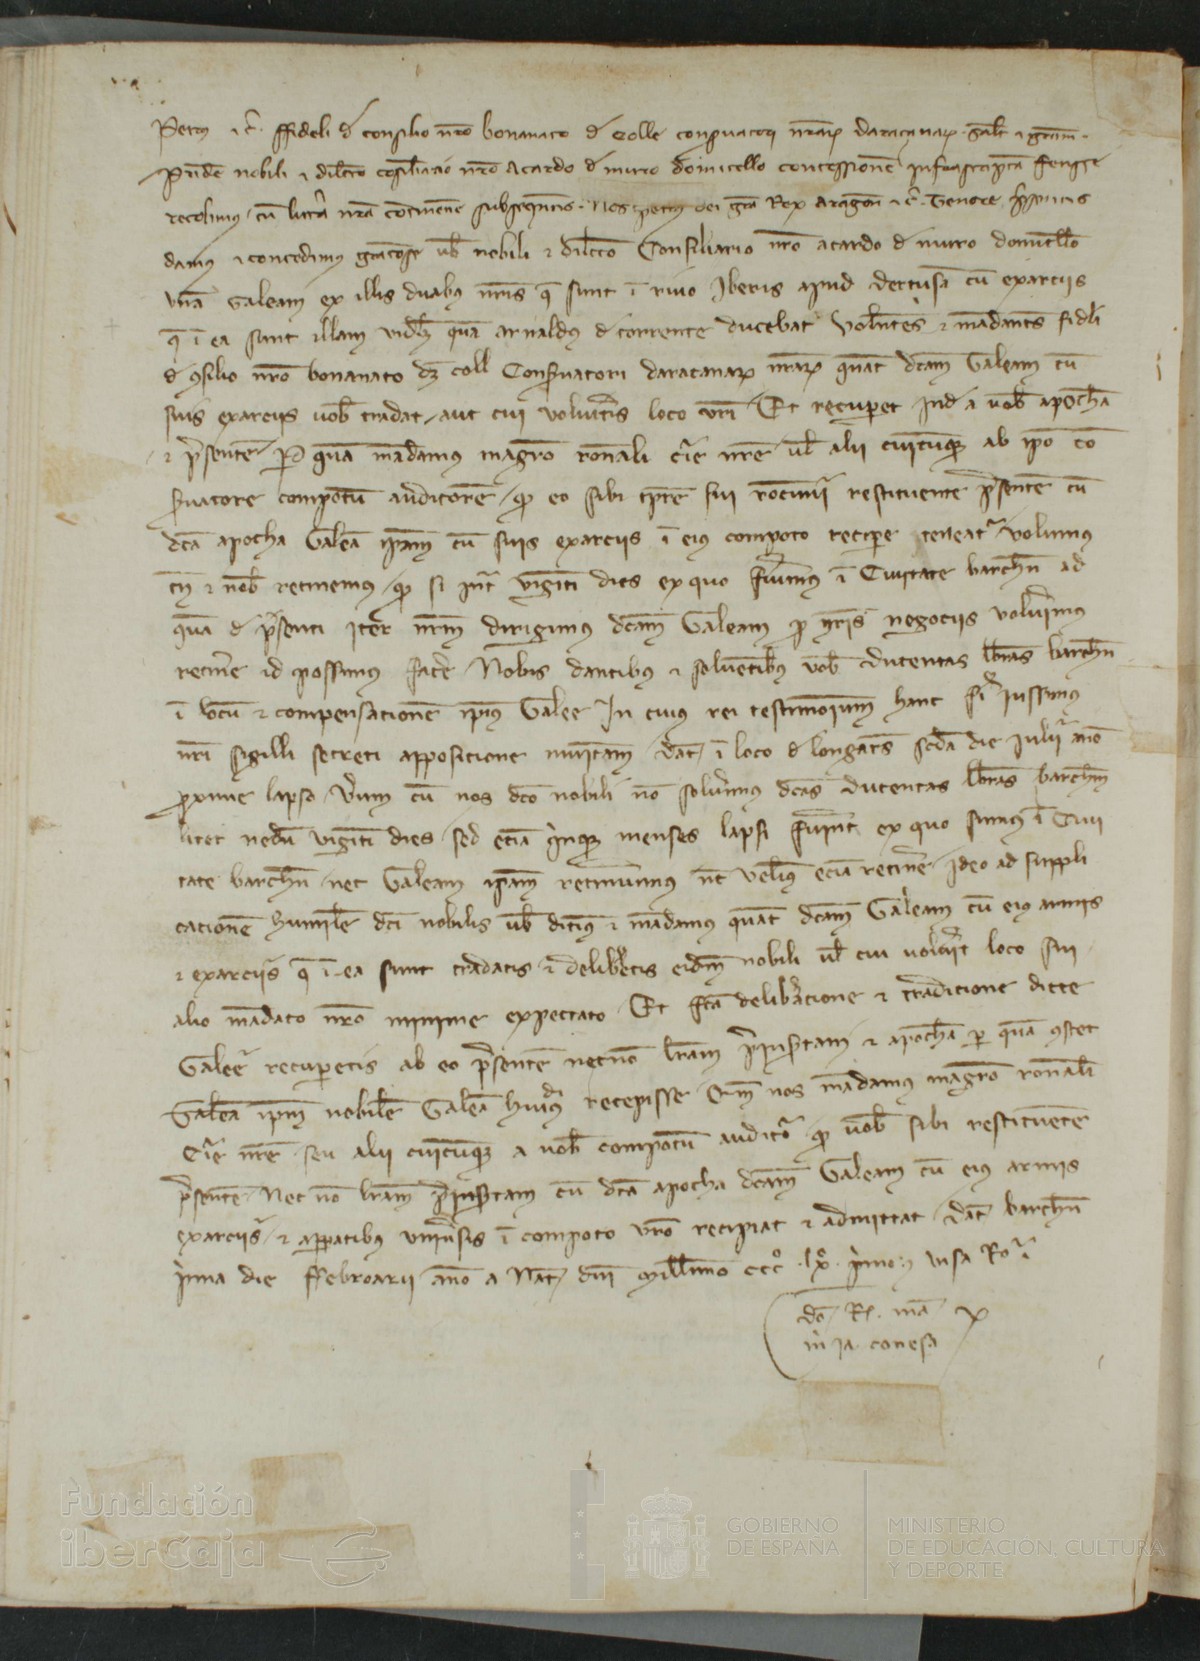 Petrus etc. ffideli de consilio nro bonanato de Colle conservatori nrar daraçanar saltm et gram.
Pridem nobili et dilcto consiliario nro Acardo de muro domicello concessionem infrascriptam fecisse
recolimus cu littera nra continene subsequentis. Nos petrus dei gra Rex Aragon etc. Tenore presentis
damus et concedimus graciose vob nobili et dilcto Consiliario nro acardo de muro domicello
vna Galeam ex illis duabus nris q sunt i rivo Iberis apud dertusa cu exarciis
q i ea sunt illam videlz qua arnaldus de torrente ducebat volentes et mandantes fideli
de consilio nro bonanato dz coll Conservatori daraçanar nrar quat dcam Galeam cu
suis exarciis vob tradat aut cui volueritis loco vri Et recuperet inde a vob apocha
et psente Per qua mandamus magro ronali Curie nre vel alii cuicumq ab ipo con
servatore compotum auditore q eo sibi tpre sui raciocinii restituente psente cu
dca apocha Galea ipam cu suis exarciis i eius compoto recipere teneatur volumus
tn et vob retinemus q si intra viginti dies ex quo fuerimus i Civitate barchn ad
qua de psenti iter nrm dirigimus dcam Galeam p nris negociis voluerimus
retinere id possimus facere Nobis dantibus et solventibus vob ducentas libras barchn
i locu et compensatione ipius Galee In cuius rei testimonium hanc fieri iussimus
nri sigilli secreti appositione munitam dat i loco de longares scda die Iulii ano
proxime lapso Verum cu nos dco nobili no solverimus dcas ducentas libras barchn
licet nedu viginti dies sed etia quinq menses lapsi fuerint ex quo sumus i Civi
tate barchn nec Galeam ipam retinuimus nec velimus eciam retinere Ideo ad suppli
catione humile dci nobilis vob dicimus et mandamus quat dcam Galeam cu eius armis
et exarciis q i ea sunt tradatis et deliberetis eidem nobili vel cui voluerit loco sui
alio mandato nro minime expectato Et fca deliberacione et tradicione dicte
Galee recuperetis ab eo psente necno lram preinsertam et apocha per qua constet
Galea ipm nobile Galea huiusmodi recepisse Qm nos mandamus magro ronali
Curie nre seu alii cuicumq a vob compotum auditor q vob sibi restituente
psente Nec no lram preinsertam cu dca apocha dcam Galeam cu eius armis
exarciis et apparatibus universis i compoto vro recipiat et admittat dat barchn
prima die ffebroarii ano a Nat dni Millimo ccc° lx° primo visa Ro i
do R. ma P
m ja conesa
Fundación
iberCaja
GOBIERNO
DE ESPAÑA
MINISTERIO
DE EDUCACIÓN, CULTURA
Y DEPORTE